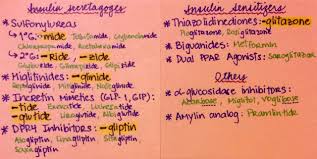 Insulin secretagogues
* Sulfonylureas
↳ 1°G: -mide Tolbutamide,
Chlorpropamide, Acetohexamide
↳ 2°G: -Ride, -zide
Glimepiride, Glipizide
* Miglitinides: -glinide
Repaglinide, Mitiglinide, Nateglinide
* Incretin Mimetics (GLP-1, GIP):
-tide
-glutide
* DPP4 Inhibitors: -gliptin
Saxagliptin
Insulin Sensitizers
* Thiazolidinediones: -glitazone
Pioglitazone, Rosiglitazone
* Biguanides: Metformin
* Dual PPAR Agonists: Saroglitazar
Others
* α-glucosidase inhibitors:
Acarbose, Miglitol, Voglibose
* Amylin analog: Pramlintide